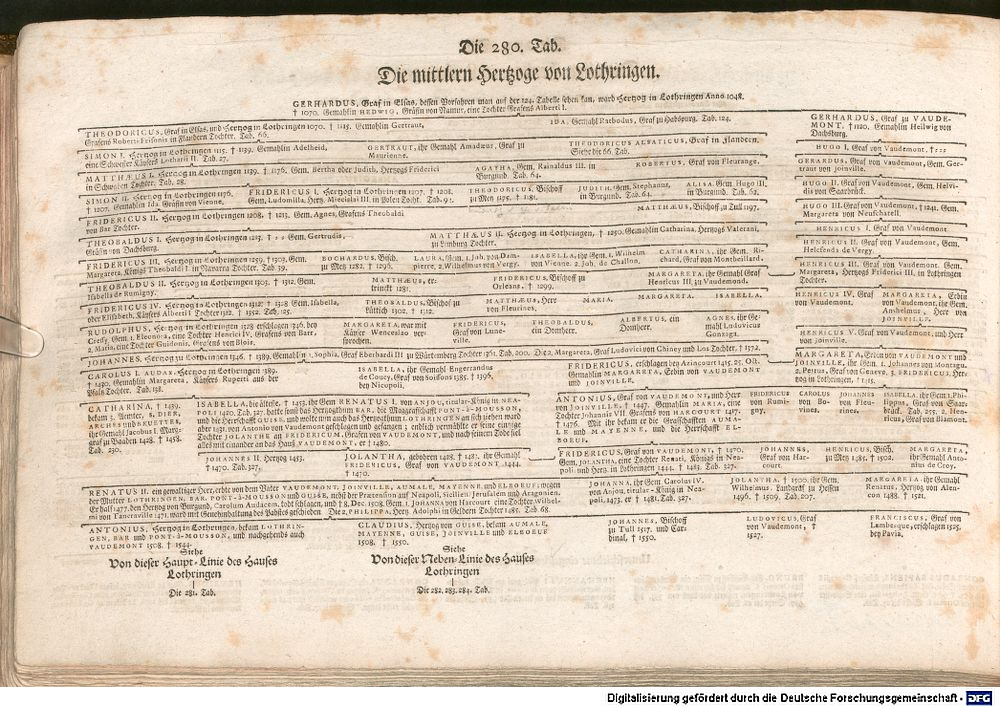 Die 280. Tab.
Die mittlern Hertzoge von Lothringen.
GERHARDUS, Graf in Elsas, dessen Vorfahren man auf der 124. Tabelle sehen kan, ward Hertzog in Lothringen Anno 1048.
† 1070. Gemahlin HEDWIG, Gräfin von Namur, eine Tochter Grafens Alberti I.
THEODORICUS, Graf in Elsas, und Hertzog in Lothringen 1070. † 1115. Gemahlin Gertraut,
Grafens Roberti Frisonis in Flandern Tochter. Tab. 66.
IDA, Gemahl Ratbodus, Graf zu Habsburg. Tab. 124.
GERHARDUS, Graf zu VAUDE-
MONT. † 1120. Gemahlin Heilwig von
Dachsburg.
SIMON I. Hertzog in Lothringen 1115. † 1139. Gemahlin Adelheid,
eine Schwester Käysers Lotharii II. Tab. 27.
GERTRAUT, ihr Gemahl Amadæus, Graf zu
Maurienne.
THEODORICUS ALSATICUS, Graf in Flandern.
Siehe die 66. Tab.
HUGO I. Graf von Vaudemont, † : : :
MATTHÆUS I. Hertzog in Lothringen 1139. † 1176. Gem. Bertha oder Judith, Hertzogs Friderici
in Schwaben Tochter. Tab. 28.
AGATHA, Gem. Rainaldus III. in
Burgund. Tab. 64.
ROBERTUS, Graf von Fleurange.
GERARDUS, Graf von Vaudemont, Gem. Ger-
traut von Joinville.
SIMON II. Hertzog in Lothringen 1176.
† 1207. Gemahlin Ida, Gräfin von Vienne.
FRIDERICUS I. Hertzog in Lothringen 1207. † 1208.
Gem. Ludomilla, Hertz. Miecislai III. in Polen Tocht. Tab. 91.
THEODORICUS, Bischoff
zu Metz 1175. † 1181.
JUDITH, Gem. Stephanus,
in Burgund. Tab. 61.
ALISA, Gem. Hugo III,
in Burgund. Tab. 62.
HUGO II. Graf von Vaudemont, Gem. Helvi-
dis von Saarbrück.
FRIDERICUS II. Hertzog in Lothringen 1208. † 1213. Gem. Agnes, Grafens Theobaldi
von Bar Tochter.
MATTHÆUS, Bischoff zu Tull 1197.
HUGO III. Graf von Vaudemont, † 1241. Gem.
Margareta von Neufchatell.
THEOBALDUS I. Hertzog in Lothringen 1213. † : : Gem. Gertrudis,
Gräfin von Dachsburg.
MATTHÆUS II. Hertzog in Lothringen, † 1250. Gemahlin Catharina, Hertzogs Valerani,
zu Limburg Tochter.
HENRICUS I. Graf von Vaudemont
FRIDERICUS III. Hertzog in Lothringen 1250. † 1303, Gem.
Margareta, Königs Theobaldi I. in Navarra Tochter. Tab. 39.
BOCHARDUS, Bisch.
zu Metz 1282. † 1296.
LAURA, Gem. 1. Joh. von Dam-
pierre, 2. Wilhelmus von Vergy.
ISABELLA, ihr Gem. 1. Wilhelm
von Vienne. 2. Joh. de Challon.
CATHARINA, ihr Gem. Ri-
chard, Graf von Montbeillard.
HENRICUS II. Graf von Vaudemont, Gem.
Helesenda de Vergy.
THEOBALDUS II. Hertzog in Lothringen 1303. † 1312. Gem.
Isabella de Rumigny.
MATTHÆUS, er-
trinckt 1281.
FRIDERICUS, Bischoff zu
Orleans. † 1299.
MARGARETA, ihr Gemahl Graf
Henricus III. zu Vaudemont.
HENRICUS III. Graf von Vaudemont, Gem.
Margareta, Hertzogs Friderici III. in Lothringen
Tochter.
FRIDERICUS IV. Hertzog in Lothringen 1312. † 1328 Gem. Isabella,
oder Elisabeth, Käysers Alberti I Tochter 1312. † 1352. Tab. 125.
THEOBALDUS, Bischoff zu
Lüttich 1302. † 1312.
MATTHÆUS, Herr
von Fleurines.
MARIA.
MARGARETA.
ISABELLA.
HENRICUS IV. Graf
von Vaudemont.
MARGARETA, Erbin
von Vaudemont, ihr Gem.
Anshelmus, Herr von
JOINVILLE.
RUDOLPHUS, Hertzog in Lothringen 1328 erschlagen 1346. bey
Cressy, Gem. 1. Eleonora, eine Tochter Henrici IV. Grafens von Barr.
2. Maria, eine Tochter Guidonis, Grafens von Blois.
MARGARETA, war mit
Käyser Wenceslao ver-
sprochen.
FRIDERICUS,
Graf von Lune-
ville.
THEOBALDUS, ein
Domherr.
ALBERTUS, ein
Domherr.
AGNES, ihr Ge-
mahl Ludovicus
Gonzaga.
HENRICUS V. Graf von Vaudemont, und Herr
von Joinville.
JOHANNES, Hertzog zu Lothringen 1346. † 1389. Gemahlin 1, Sophia, Graf Eberhardi III zu Würtemberg Tochter 1361. Tab. 200. Die 2. Margareta, Graf Ludovici von Chiney und Los Tochter, † 1372.
MARGARETA, Erbin von VAUDEMONT und
JOINVILLE, ihr Gem. 1. Johannes von Montagu.
2. Petrus, Graf von Geneve. 3. FRIDERICUS, Her-
tzog in Lothringen, † 1415.
CAROLUS I. AUDAX, Hertzog in Lothringen 1389.
† 1430. Gemahlin Margareta, Käysers Ruperti aus der
Pfaltz Tochter. Tab. 138.
ISABELLA, ihr Gemahl Enguerrandus
de Coucy, Graf von Soissons 1385. † 1396,
bey Nicopoli.
FRIDERICUS, erschlagen bey Azincourt 1415. 25. Oct.
Gemahlin MARGARETA, Erbin von VAUDEMONT
und JOINVILLE.
CATHARINA, † 1439.
bekam 5. Aemter, 2. DIER,
ARCHES und BRUEYERES,
ihr Gemahl Jacobus I. Marg-
graf zu Baaden 1428. † 1458.
Tab. 230.
ISABELLA, die älteste. † 1453. ihr Gem RENATUS I. von ANJOU, titular-König in NEA-
POLI 1420. Tab. 327. hatte sonst das Hertzogthum BAR, die Marggrafschafft PONT-à-MOUSSON,
und die Herrschafft GUISE, und wolte nun auch das Hertzogthum LOTHRINGEN an sich ziehen, ward
aber 1431. von Antonio von Vaudemont geschlagen und gefangen; endlich vermählte er seine eintzige
Tochter JOLANTHE an FRIDERICUM, Grafen von VAUDEMONT, und nach seinem Tode fiel
alles mit einander an das Haus VAUDEMONT, er † 1480.
ANTONIUS, Graf von VAUDEMONT, und Herr
von JOINVILLE, † 1447. Gemahlin MARIA, eine
Tochter Johannis VII. Grafens von HARCOURT 1417.
† 1476. Mit ihr bekam er die Grafschafften AUMA-
LE und MAYENNE, und die Herrschafft EL-
BOEUF.
FRIDERICUS
von Rumi-
gny.
CAROLUS
von Bo-
vines.
JOHANNES
von Fleu-
rines.
ISABELLA, ihr Gem. 1. Phi-
lippus, Graf von Saar-
brück. Tab. 255. 2. Hen-
ricus, Graf von Blamont.
JOHANNES II. Hertzog 1453.
† 1470. Tab. 327.
JOLANTHA, gebohren 1428. † 1483. ihr Gemahl
FRIDERICUS, Graf von VAUDEMONT 1444.
† 1470.
FRIDERICUS, Graf von VAUDEMONT, † 1470.
Gem. JOLANTHA, eine Tochter Renati, Königs in Nea-
poli und Hertz. in Lothringen 1444. † 1483. Tab. 327.
JOHANNES,
Graf von Har-
court.
HENRICUS, Bischoff
zu Metz 1485. † 1502.
MARGARETA,
ihr Gemahl Anto-
nius de Croy.
RENATUS II. ein gewaltiger Herr, erbte von dem Vater VAUDEMONT, JOINVILLE, AUMALE, MAYENNE, und ELBOEUF, wegen
der Mutter LOTHRINGEN, BAR, PONT-à-MOUSSON und GUISE, nebst der Prætension auf Neapoli, Sicilien, Jerusalem und Aragonien.
Er half 1477. den Hertzog von Burgund, Carolum Audacem, todt schlagen, und † 8. Dec. 1508. Gem. 1. Johanna von Harcourt, eine Tochter Wilhel-
mi von Tancarville 1471. ward mit Genehmhaltung des Pabstes geschieden. Die 2. PHILIPPA, Hertz. Adolphi in Geldern Tochter 1485. Tab. 68.
JOHANNA, ihr Gem. Carolus IV.
von Anjou, titular-König in Nea-
poli. 1473. er † 1481. Tab. 327.
JOLANTHA, † 1500. ihr Gem.
Wilhelmus, Landgraf zu Hessen
1496. † 1509. Tab. 207.
MARGARETA, ihr Gemahl
Renatus, Hertzog von Alen-
con 1488. † 1521.
ANTONIUS, Hertzog in Lothringen, bekam LOTHRIN-
GEN, BAR und PONT-à-MOUSSON, und nachgehends auch
VAUDEMONT 1508. † 1544.
CLAUDIUS, Hertzog von GUISE, bekam AUMALE,
MAYENNE, GUISE, JOINVILLE und ELBOEUF
1508. † 1550.
JOHANNES, Bischoff
zu Tull 1517. und Car-
dinal, † 1550.
LUDOVICUS, Graf
von Vaudemont, †
1527.
FRANCISCUS, Graf von
Lambesque, erschlagen 1525.
bey Pavia.
Siehe
Von dieser Haupt-Linie des Hauses
Lothringen
Die 281. Tab.
Siehe
Von dieser Neben-Linie des Hauses
Lothringen
Die 282. 283. 284. Tab.
Digitalisierung gefördert durch die Deutsche Forschungsgemeinschaft - DFG